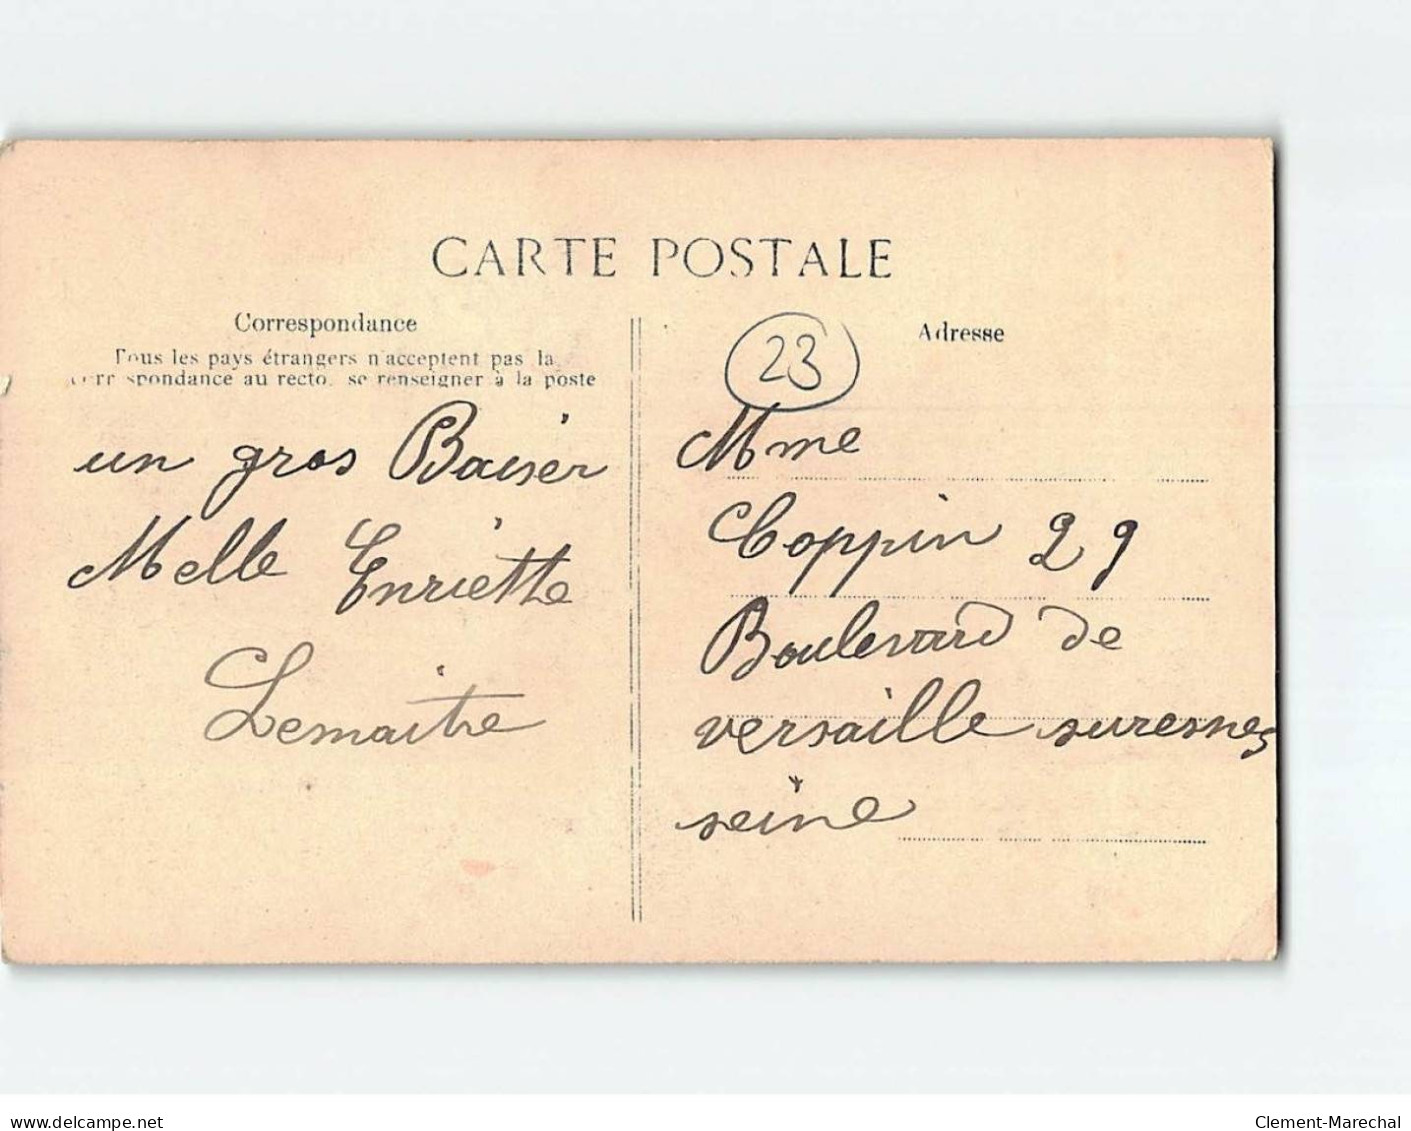 CARTE POSTALE
Correspondance
Tous les pays étrangers n'acceptent pas la
correspondance au recto, se renseigner à la poste
un gros Baiser
Melle Enriette
Lemaitre
23
Adresse
Mme
Coppin 29
Boulevard de
versaille suresnes
seine
www.delcampe.net
Clement-Marechal